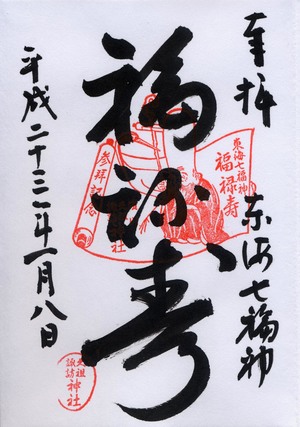 奉拝
東海七福神
福禄寿
平成二十三年一月八日
東海七福神
福禄寿
参拝記念
神社
天祖
諏訪
神社